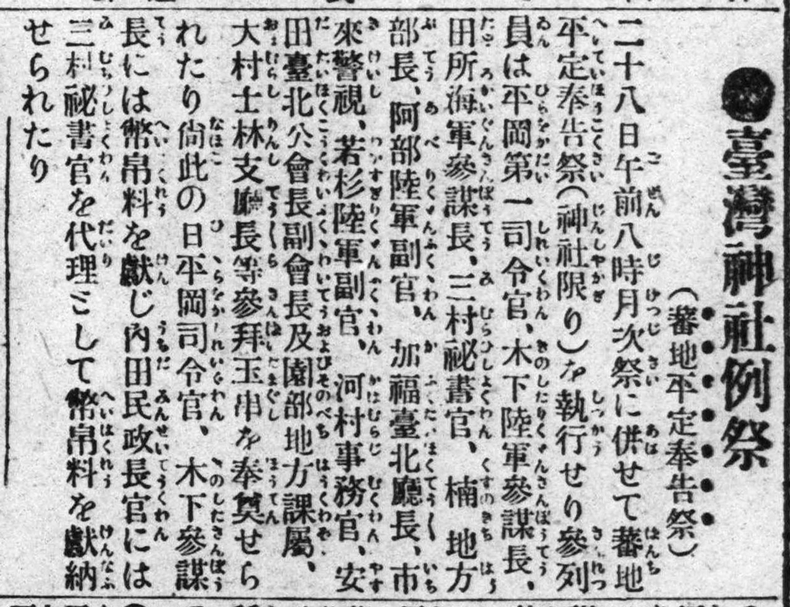 臺灣神社例祭
(蕃地平定奉告祭)
二十八日午前八時月次祭に併せて蕃地
平定奉告祭(神社限り)を執行せり參列
員は平岡第一司令官、木下陸軍參謀長、
田所海軍參謀長、三村祕書官、楠 地方
部長、阿部陸軍副官、加福臺北廳長、市
來警視、若杉陸軍副官、河村事務官、安
田臺北公會長副會長及園部地方課屬、
大村士林支廳長等參拜玉串を奉奠せら
れたり尙此の日平岡司令官、木下參謀
長には幣帛料を獻じ內田民政長官には
三村祕書官を代理として幣帛料を獻納
せられたり